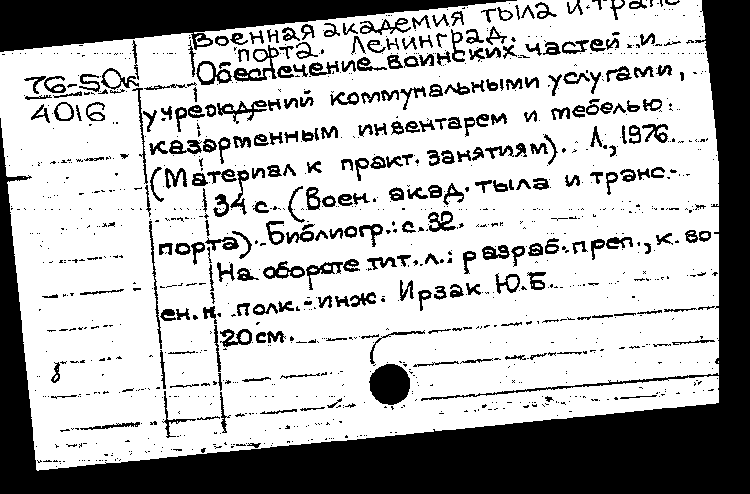 Военная академия тыла и транс-
порта. Ленинград.
76-50к
4016
Обеспечение воинских частей и
учреждений коммунальными услугами,
казарменным инвентарем и мебелью.
(Материал к практ. занятиям). Л., 1976.
34 с. (Воен. акад. тыла и транс-
порта). Библиогр.: с. 32.
На обороте тит. л.: разраб. преп., к. во-
ен. н. полк.-инж. Ирзак Ю.Б.
20 см.